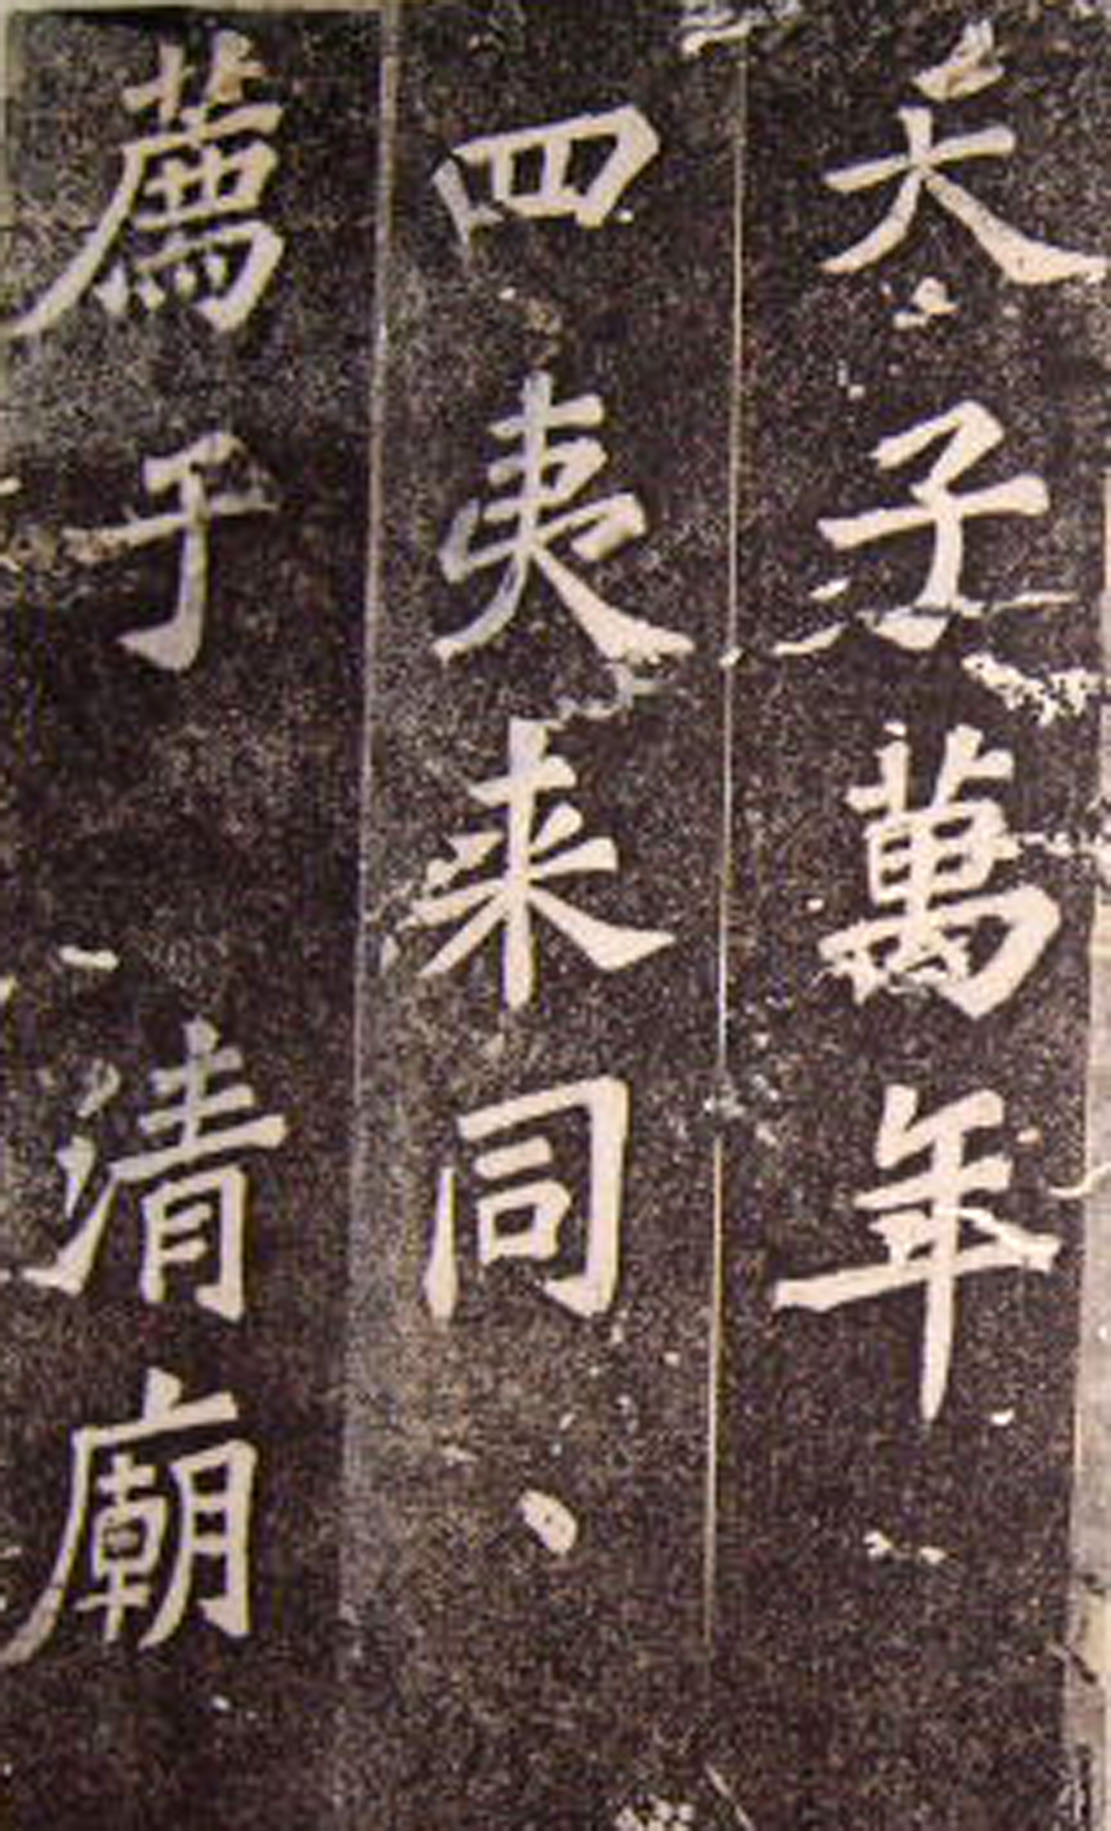 天子萬年
四夷来同
薦于清廟